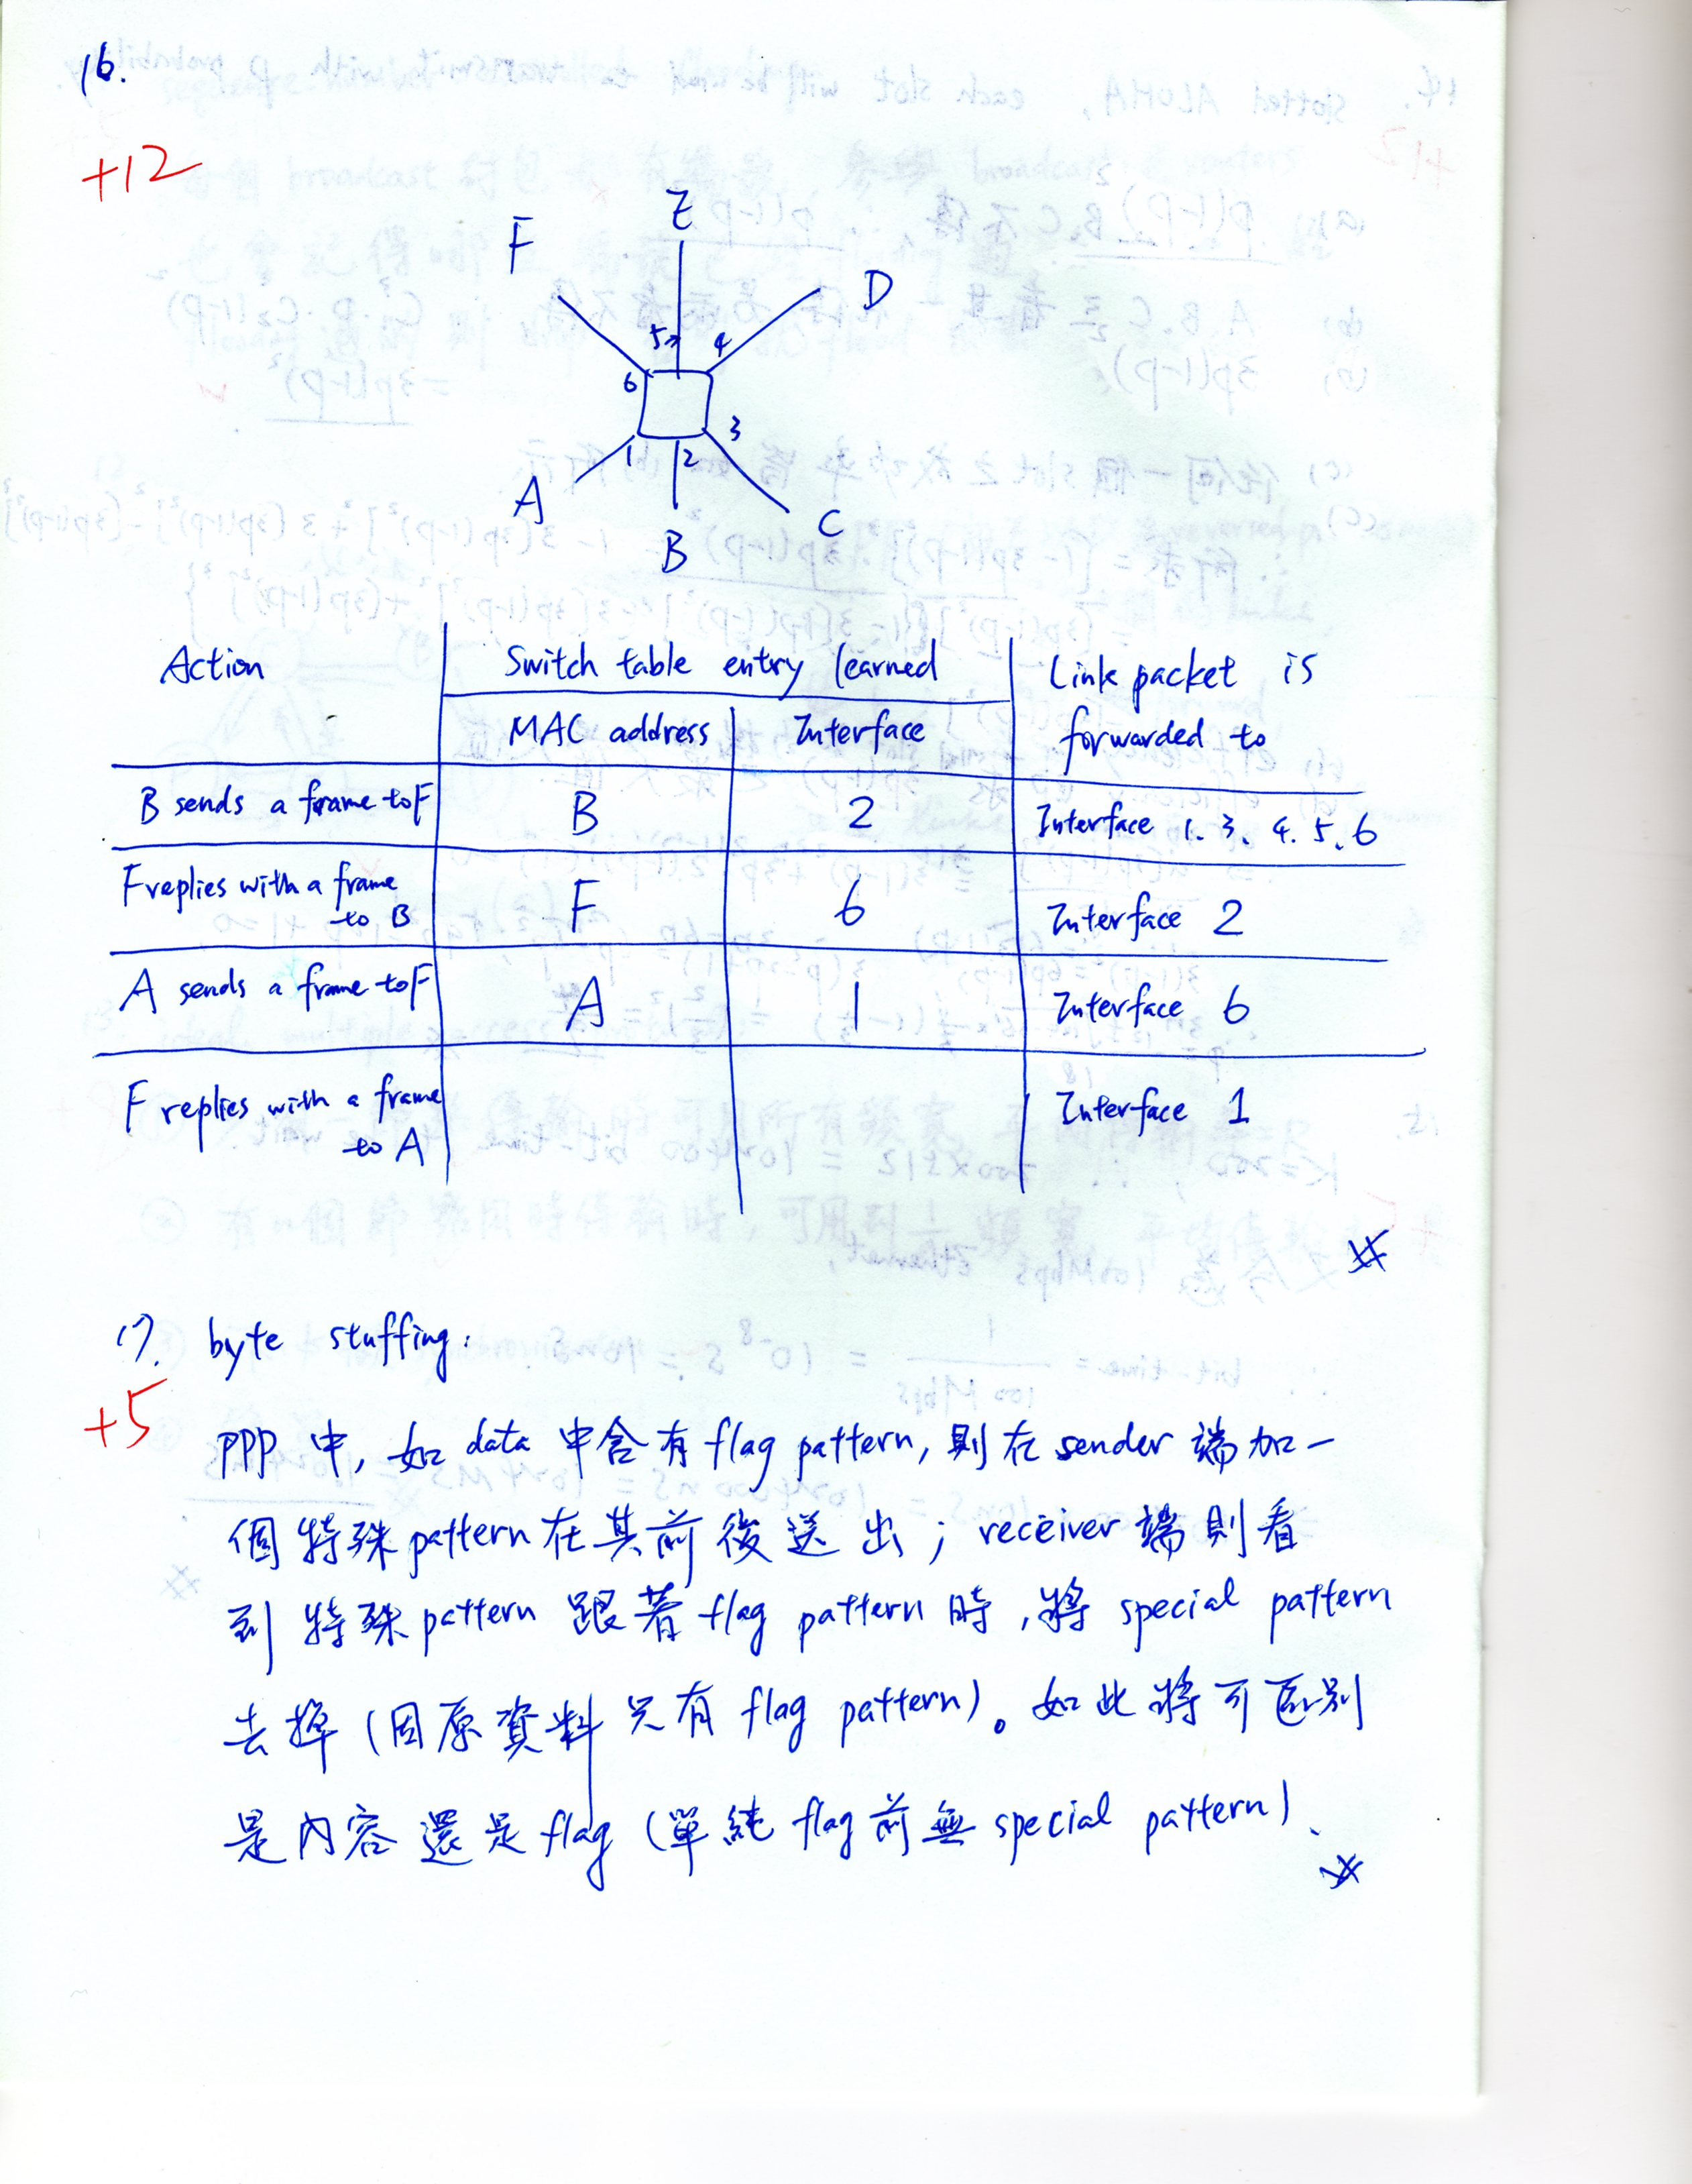 16.
+12
E
F
D
5
4
6
3
1
2
A
C
B
Action
Switch table entry learned
Link packet is
forwarded to
MAC address
Interface
B sends a frame to F
B
2
Interface 1. 3、4. 5、6
F replies with a frame
to B
F
6
Interface 2
A sends a frame to F
A
1
Interface 6
F replies with a frame
to A
Interface 1
17. byte stuffing.
+5
PPP 中, 如 data 中含有 flag pattern, 則在 sender 端加一
個特殊 pattern 在其前後送出; receiver 端則看
到特殊 pattern 跟著 flag pattern 時, 將 special pattern
去掉 (因原資料只有 flag pattern)。如此將可區別
是內容還是 flag (單純 flag 前無 special pattern)、